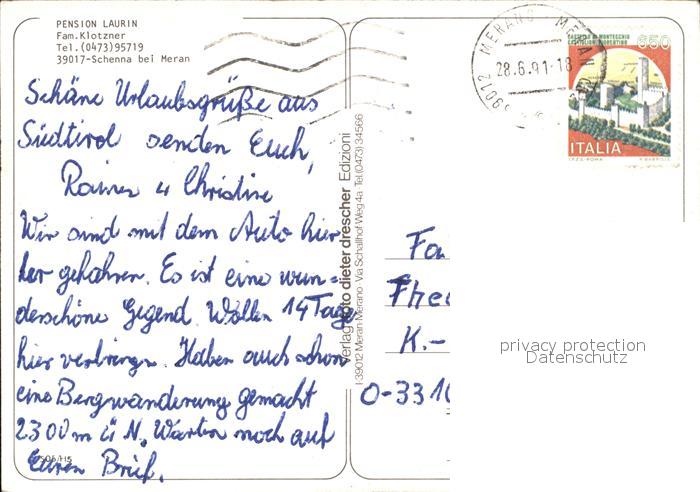 PENSION LAURIN
Fam.Klotzner
Tel.(0473)95719
39017-Schenna bei Meran
Schöne Urlaubsgrüße aus
Südtirol senden Euch,
Rainer u Christine
Wir sind mit dem Auto hier
her gefahren. Es ist eine wun-
derschöne Gegend. Wollen 14 Tage
hier verbringen. Haben auch schon
eine Bergwanderung gemacht
2300 m ü N. Warten noch auf
Euren Brief.
verlag foto dieter drescher Edizioni
I-39012 Meran Merano · Via Schallhof Weg 4a Tel. (0473) 34566
39012 MERANO MERAN
28.6.91-18
CASTELLO DI MONTECCHIO
CASTIGLION FIORENTINO
650
ITALIA
I.P.Z.S.-ROMA
Fa
Thei
K.-
O-331
privacy protection
Datenschutz